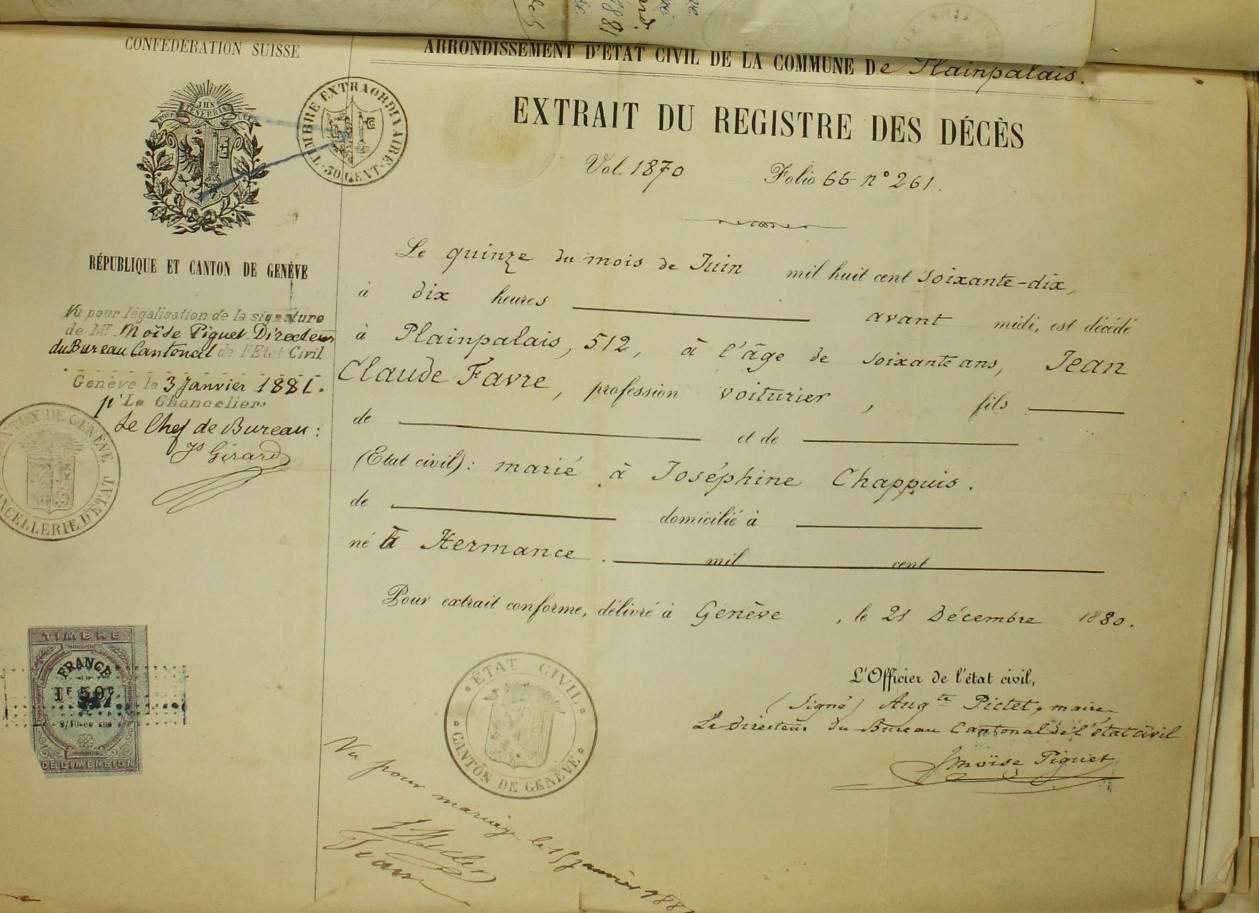 CONFÉDÉRATION SUISSE
ARRONDISSEMENT D'ÉTAT CIVIL DE LA COMMUNE De Plainpalais.
TIMBRE EXTRAORDINAIRE
50 CENT.
EXTRAIT DU REGISTRE DES DÉCÈS
Vol. 1870 Folio 66 n° 261.
RÉPUBLIQUE ET CANTON DE GENÈVE
Vu pour légalisation de la signature
de Mr. Moïse Piguet Directeur
du Bureau Cantonal de l'Etat Civil
Genève le 3 Janvier 1881.
pr Le Chancelier:
Le Chef de Bureau:
Js Girard
CANTON DE GENÈVE
CHANCELLERIE D'ÉTAT
Le quinze du mois de Juin mil huit cent soixante-dix,
à dix heures avant midi, est décédé
à Plainpalais, 512, à l'âge de soixante ans, Jean
Claude Favre, profession voiturier, fils
de et de
(Etat civil): marié à Joséphine Chappuis.
de domicilié à
né à Hermance. mil cent
Pour extrait conforme, délivré à Genève, le 21 Décembre 1880.
L'Officier de l'état civil,
(Signé) Augte Pictet, maire
Le Directeur du Bureau Cantonal de l'état civil
Moïse Piguet
ÉTAT CIVIL
CANTON DE GENÈVE
TIMBRE
FRANCE
1F 50c
DE DIMENSION
Vu pour mariage le 15 janvier 1881